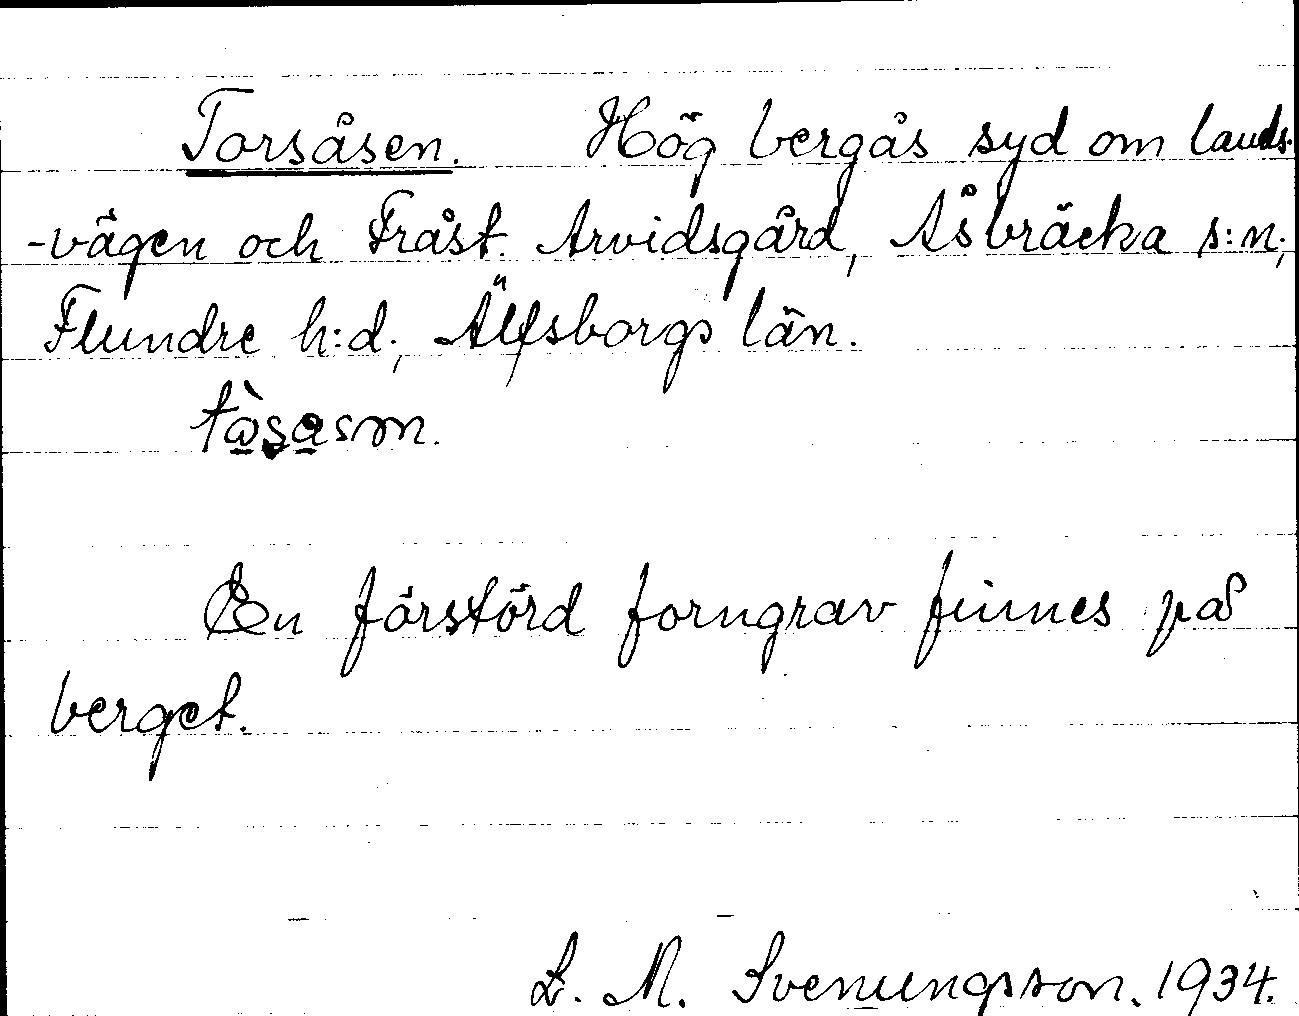 Torsåsen. Hög bergås syd om lands-
-vägen och Fråst. Arvidsgård, Åsbräcka s:n;
Flundre h:d., Älfsborgs län.
En förstörd forngrav finnes på
berget.
L. M. Svenungsson. 1934.